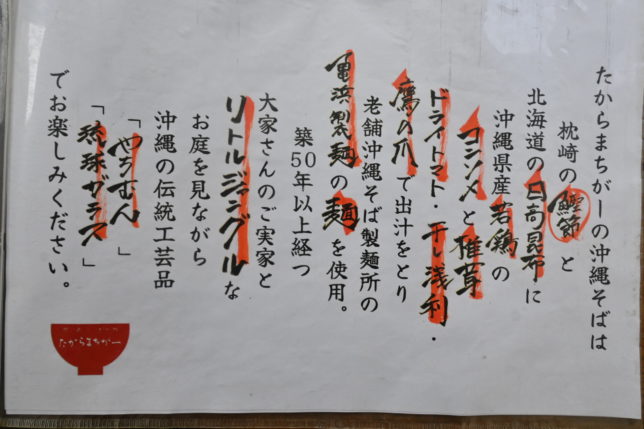 たからまちがーの沖縄そばは
枕崎の鰹節と
北海道の日高昆布に
沖縄県産若鶏の
コンソメと椎茸
ドライトマト・干し浅利・
鷹の爪で出汁をとり
老舗沖縄そば製麺所の
亀浜製麺の麺を使用。
築50年以上経つ
大家さんのご実家と
リトルジャングルな
お庭を見ながら
沖縄の伝統工芸品
「やちむん」
「琉球ガラス」
でお楽しみください。
たからまちがー